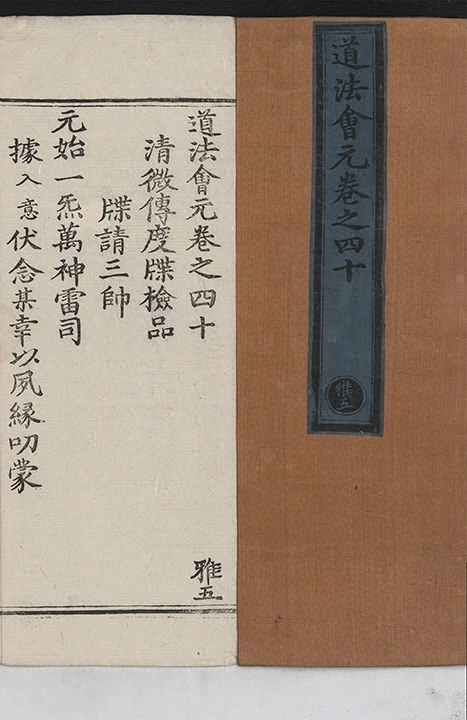 道法會元卷之四十
雅五
道法會元卷之四十
雅五
清微傳度牒檢品
牒請三帥
元始一炁萬神雷司
據入意伏念某幸以夙縁叨蒙